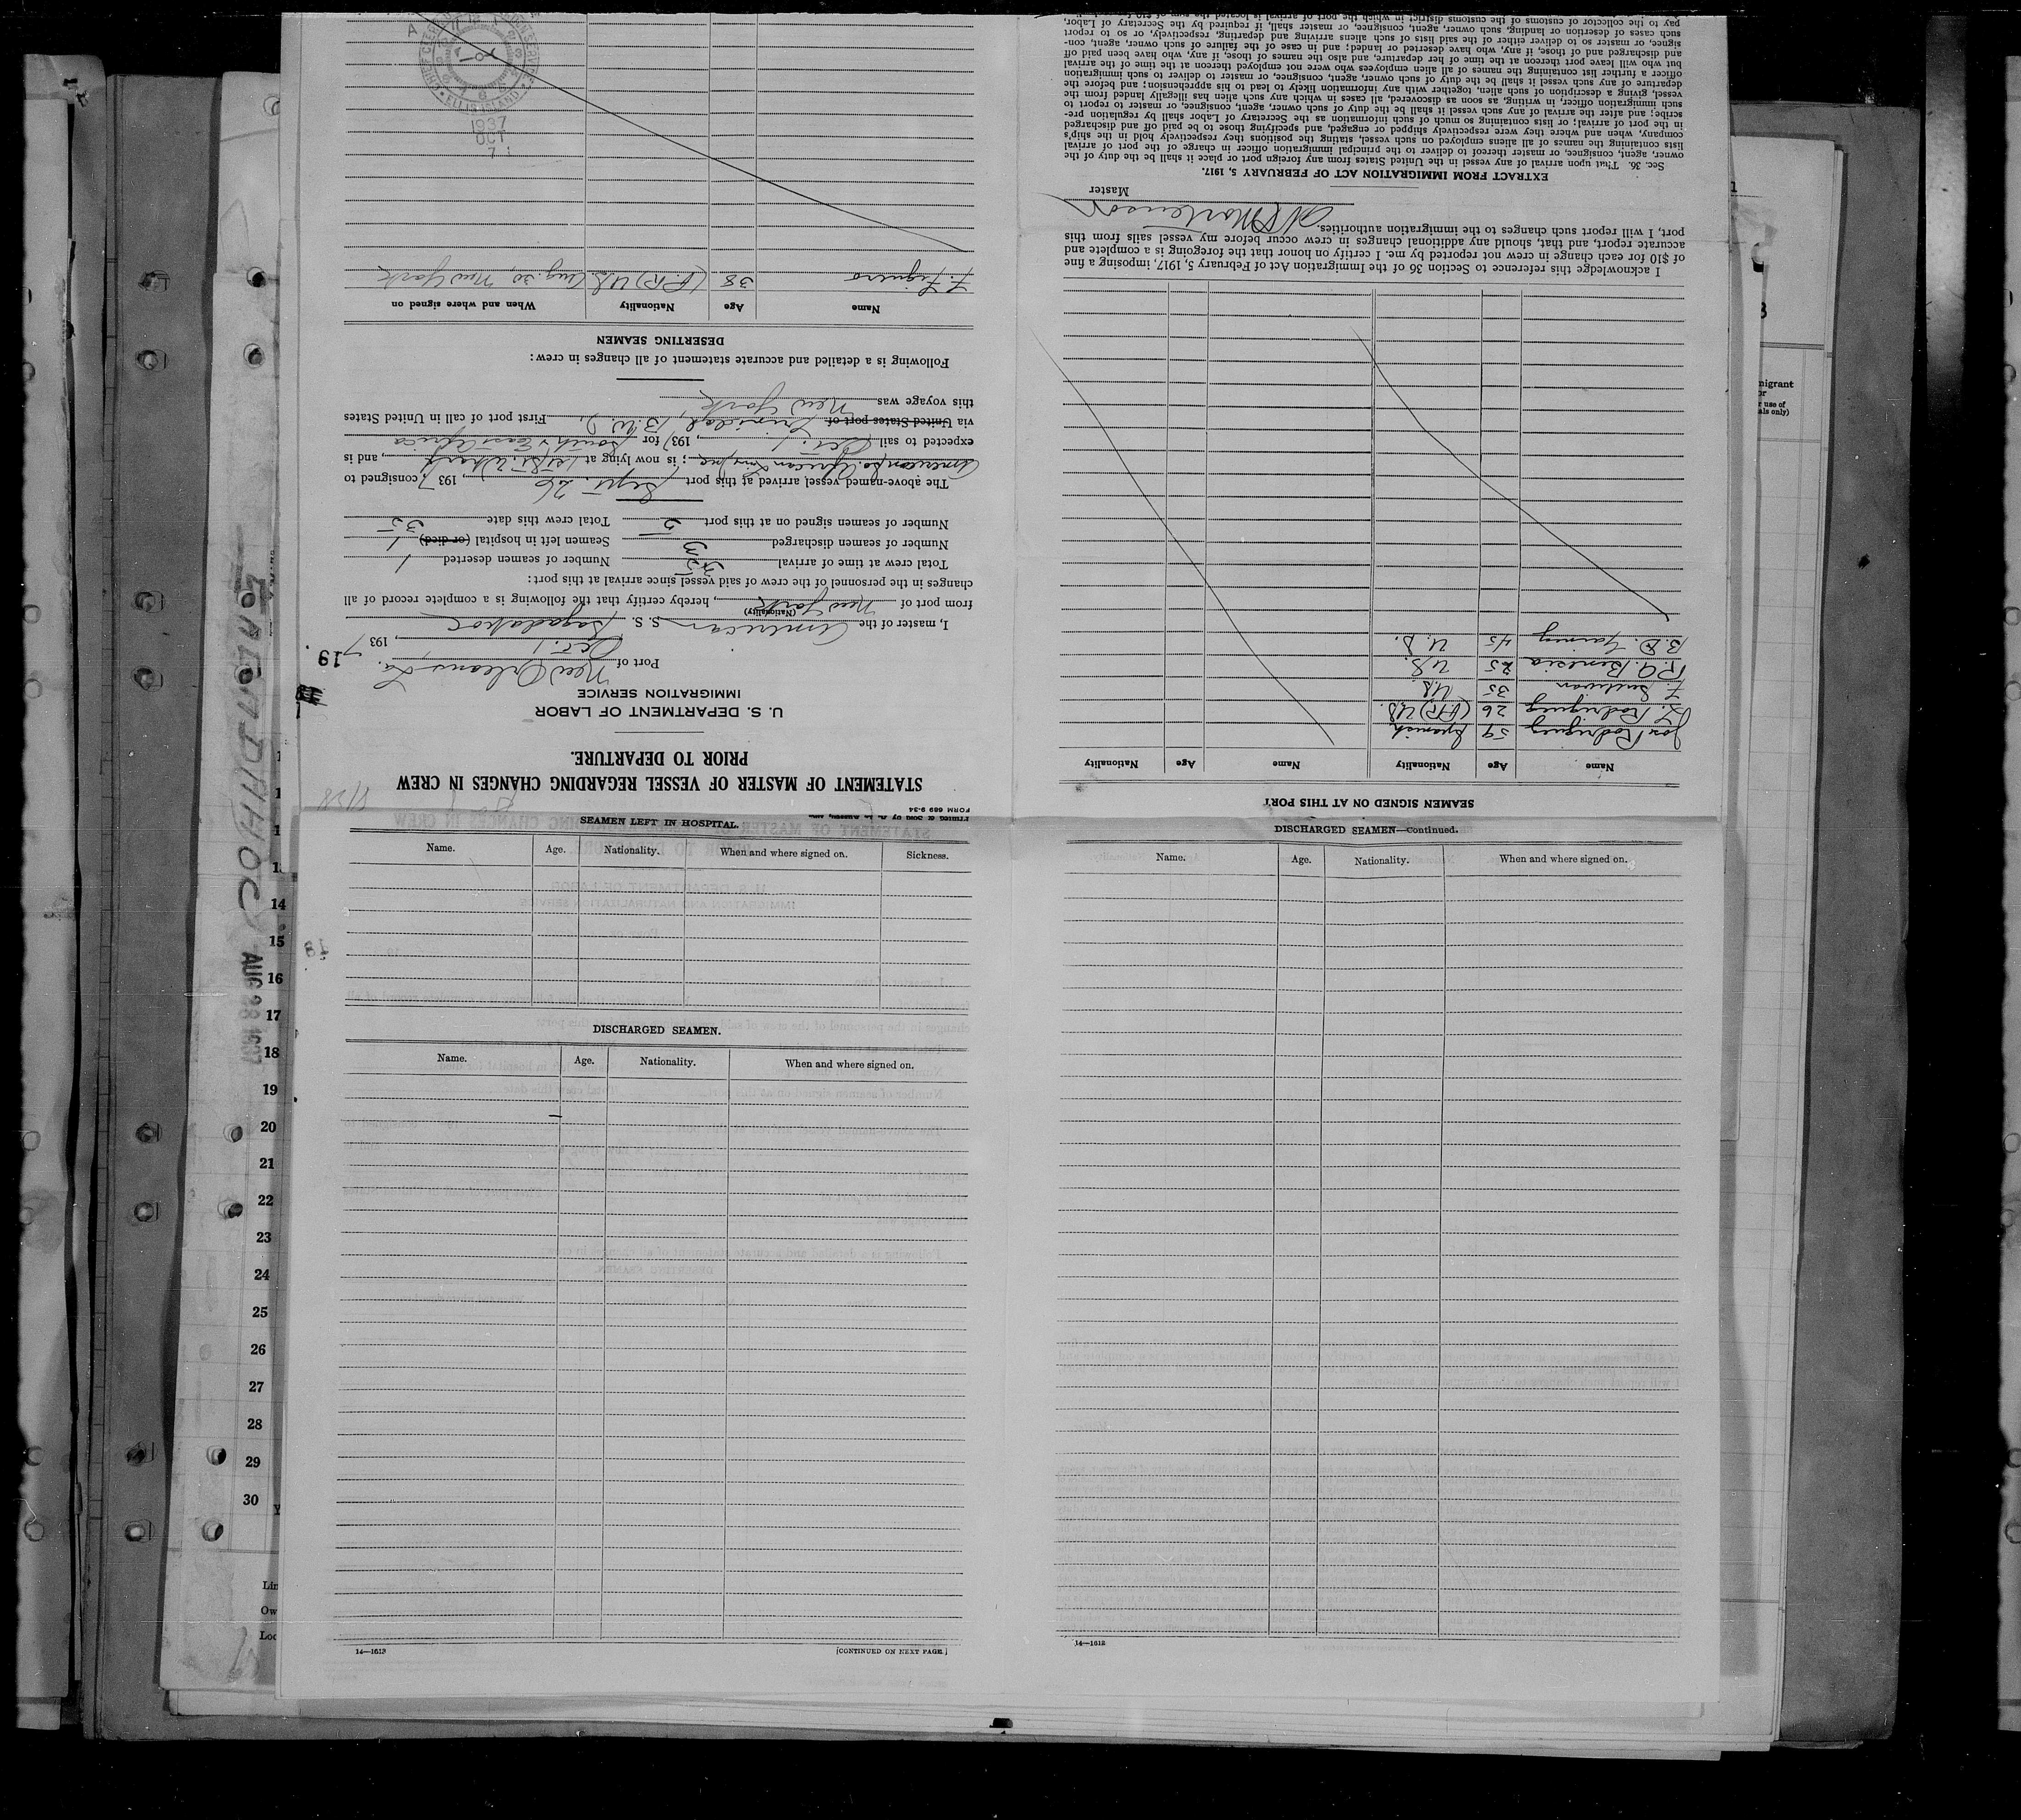 FORM 689 9-34
STATEMENT OF MASTER OF VESSEL REGARDING CHANGES IN CREW
PRIOR TO DEPARTURE.
U. S. DEPARTMENT OF LABOR
IMMIGRATION SERVICE
Port of New Orleans La.
Oct. 1, 1937
I, master of the American S. S. Sagadahoc
(Nationality)
from port of New York, hereby certify that the following is a complete record of all
changes in the personnel of the crew of said vessel since arrival at this port:
Total crew at time of arrival Number of seamen deserted 1
Number of seamen discharged 3 Seamen left in hospital (or died) 1
Number of seamen signed on at this port 5 Total crew this date 35
The above-named vessel arrived at this port Sept. 26, 1937 consigned to
American So African Line Inc; is now lying at 1st St. Wharf, and is
expected to sail Oct. 1, 1937 for South & East Africa
via United States port of Trinidad, B.W.I. First port of call in United States
this voyage was New York
Following is a detailed and accurate statement of all changes in crew:
DESERTING SEAMEN
Name Age Nationality When and where signed on
F. Figuero 38 (P.R) U.S. Aug. 30, New York
1937
OCT
7
ELLIS ISLAND
SEAMEN SIGNED ON AT THIS PORT
Name Age Nationality Name Age Nationality
Jose Rodriguez 59 Spanish
L. Rodriguez 26 (P.R) U.S.
F. 35 U.S.
R.A. Benesia 25 U.S.
B. D. 45 U.S.
I acknowledge this reference to Section 36 of the Immigration Act of February 5, 1917, imposing a fine
of $10 for each change in crew not reported by me. I certify on honor that the foregoing is a complete and
accurate report, and that, should any additional changes in crew occur before my vessel sails from this
port, I will report such changes to the immigration authorities.
Mortenson
Master
EXTRACT FROM IMMIGRATION ACT OF FEBRUARY 5, 1917.
Sec. 36. That upon arrival of any vessel in the United States from any foreign port or place it shall be the duty of the
owner, agent, consignee, or master thereof to deliver to the principal immigration officer in charge of the port of arrival
lists containing the names of all aliens employed on such vessel, stating the positions they respectively hold in the ship's
company, when and where they were respectively shipped or engaged, and specifying those to be paid off and discharged
in the port of arrival; or lists containing so much of such information as the Secretary of Labor shall by regulation pre-
scribe; and after the arrival of any such vessel it shall be the duty of such owner, agent, consignee, or master to report to
such immigration officer, in writing, as soon as discovered, all cases in which any such alien has illegally landed from the
vessel, giving a description of such alien, together with any information likely to lead to his apprehension; and before the
departure of any such vessel it shall be the duty of such owner, agent, consignee, or master to deliver to such immigration
officer a further list containing the names of all alien employees who were not employed thereon at the time of the arrival
but who will leave port thereon at the time of her departure, and also the names of those, if any, who have been paid off
and discharged and of those, if any, who have deserted or landed; and in case of the failure of such owner, agent, con-
signee, or master so to deliver either of the said lists of such aliens arriving and departing, respectively, or so to report
such cases of desertion or landing, such owner, agent, consignee, or master shall, if required by the Secretary of Labor,
pay to the collector of customs of the customs district in which the port of arrival is located the sum of $10
SEAMEN LEFT IN HOSPITAL.
Name. Age. Nationality. When and where signed on. Sickness.
DISCHARGED SEAMEN.
Name. Age. Nationality. When and where signed on.
14—1613 [CONTINUED ON NEXT PAGE.]
DISCHARGED SEAMEN—Continued.
Name. Age. Nationality. When and where signed on.
14—1612
AUG 28 1937
14
15
16
17
18
19
20
21
22
23
24
25
26
27
28
29
30
Lin
Ow
Loc